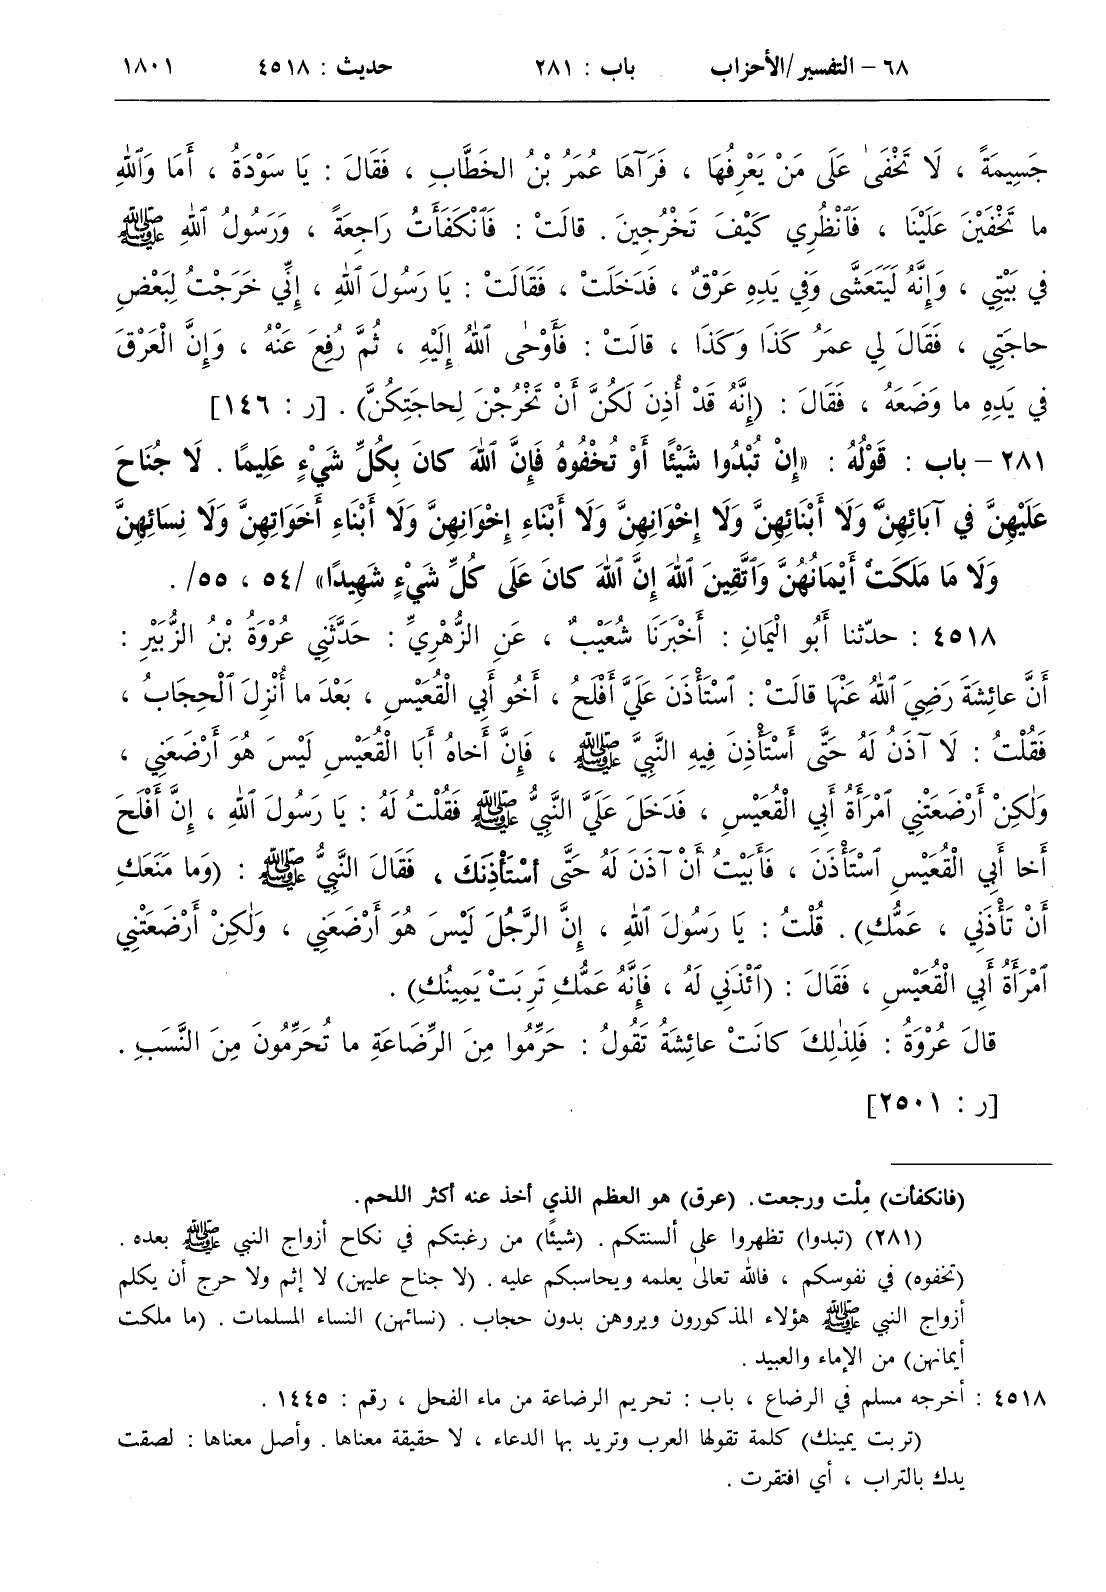 ٦٨ – التفسير/الأحزاب باب : ٢٨١ حديث : ٤٥١٨ ١٨٠١
جَسِيمَةً ، لَا تَخْفَىٰ عَلَى مَنْ يَعْرِفُهَا ، فَرَآهَا عُمَرُ بْنُ الخَطَّابِ ، فَقَالَ : يَا سَوْدَةُ ، أَمَا وَٱللهِ
ما تَخْفَيْنَ عَلَيْنَا ، فَٱنْظُرِي كَيْفَ تَخْرُجِينَ . قالَتْ : فَٱنْكَفَأَتْ رَاجِعَةً ، وَرَسُولُ ٱللهِ ﷺ
في بَيْتِي ، وَإِنَّهُ لَيَتَعَشَّى وَفِي يَدِهِ عَرْقٌ ، فَدَخَلَتْ ، فَقَالَتْ : يَا رَسُولَ ٱللهِ ، إِنِّي خَرَجْتُ لِبَعْضِ
حاجَتِي ، فَقَالَ لِي عمَرُ كَذَا وَكَذَا ، قالَتْ : فَأَوْحٰى ٱللهُ إِلَيْهِ ، ثُمَّ رُفِعَ عَنْهُ ، وَإِنَّ الْعَرْقَ
في يَدِهِ ما وَضَعَهُ ، فَقَالَ : (إِنَّهُ قَدْ أُذِنَ لَكُنَّ أَنْ تَخْرُجْنَ لِحاجَتِكُنَّ) . [ر : ١٤٦]
٢٨١ – باب : قَوْلُهُ : «إِنْ تُبْدُوا شَيْئًا أَوْ تُخْفُوهُ فَإِنَّ ٱللهَ كانَ بِكُلِّ شَيْءٍ عَلِيمًا . لَا جُنَاحَ
عَلَيْهِنَّ في آبَائِهِنَّ وَلَا أَبْنَائِهِنَّ وَلَا إِخْوَانِهِنَّ وَلَا أَبْنَاءِ إِخْوَانِهِنَّ وَلَا أَبْنَاءِ أَخَوَاتِهِنَّ وَلَا نِسَائِهِنَّ
وَلَا ما مَلَكَتْ أَيْمَانُهُنَّ وَٱتَّقِينَ ٱللهَ إِنَّ ٱللهَ كانَ عَلَى كُلِّ شَيْءٍ شَهِيدًا» /٥٤ ، ٥٥/ .
٤٥١٨ : حدّثنا أَبُو الْيَمَانِ : أَخْبَرَنَا شُعَيْبٌ ، عَنِ الزُّهْرِيِّ : حَدَّثَنِي عُرْوَةُ بْنُ الزُّبَيْرِ :
أَنَّ عائِشَةَ رَضِيَ ٱللهُ عَنْهَا قالَتْ : ٱسْتَأْذَنَ عَلَيَّ أَفْلَحُ ، أَخُو أَبِي الْقُعَيْسِ ، بَعْدَ ما أُنْزِلَ ٱلْحِجَابُ ،
فَقُلْتُ : لَا آذَنُ لَهُ حَتَّى أَسْتَأْذِنَ فِيهِ النَّبِيَّ ﷺ ، فَإِنَّ أَخاهُ أَبَا الْقُعَيْسِ لَيْسَ هُوَ أَرْضَعَنِي ،
وَلٰكِنْ أَرْضَعَتْنِي ٱمْرَأَةُ أَبِي الْقُعَيْسِ ، فَدَخَلَ عَلَيَّ النَّبِيُّ ﷺ فَقُلْتُ لَهُ : يَا رَسُولَ ٱللهِ ، إِنَّ أَفْلَحَ
أَخا أَبِي الْقُعَيْسِ ٱسْتَأْذَنَ ، فَأَبَيْتُ أَنْ آذَنَ لَهُ حَتَّى أَسْتَأْذِنَكَ ، فَقَالَ النَّبِيُّ ﷺ : (وَما مَنَعَكِ
أَنْ تَأْذَنِي ، عَمُّكِ) . قُلْتُ : يَا رَسُولَ ٱللهِ ، إِنَّ الرَّجُلَ لَيْسَ هُوَ أَرْضَعَنِي ، وَلٰكِنْ أَرْضَعَتْنِي
ٱمْرَأَةُ أَبِي الْقُعَيْسِ ، فَقَالَ : (ٱئْذَنِي لَهُ ، فَإِنَّهُ عَمُّكِ تَرِبَتْ يَمِينُكِ) .
قالَ عُرْوَةُ : فَلِذٰلِكَ كانَتْ عائِشَةُ تَقُولُ : حَرِّمُوا مِنَ الرَّضَاعَةِ ما تُحَرِّمُونَ مِنَ النَّسَبِ .
[ر : ٢٥٠١]
(فانكفأت) مِلْت ورجعت. (عرق) هو العظم الذي أخذ عنه أكثر اللحم.
(٢٨١) (تبدوا) تظهروا على ألسنتكم . (شيئًا) من رغبتكم في نكاح أزواج النبي ﷺ بعده .
(تخفوه) في نفوسكم ، فالله تعالىٰ يعلمه ويحاسبكم عليه . (لا جناح عليهن) لا إثم ولا حرج أن يكلم
أزواج النبي ﷺ هؤلاء المذكورون ويروهن بدون حجاب . (نسائهن) النساء المسلمات . (ما ملكت
أيمانهن) من الإماء والعبيد .
٤٥١٨ : أخرجه مسلم في الرضاع ، باب : تحريم الرضاعة من ماء الفحل ، رقم : ١٤٤٥ .
(تربت يمينك) كلمة تقولها العرب وتريد بها الدعاء ، لا حقيقة معناها . وأصل معناها : لصقت
يدك بالتراب ، أي افتقرت .